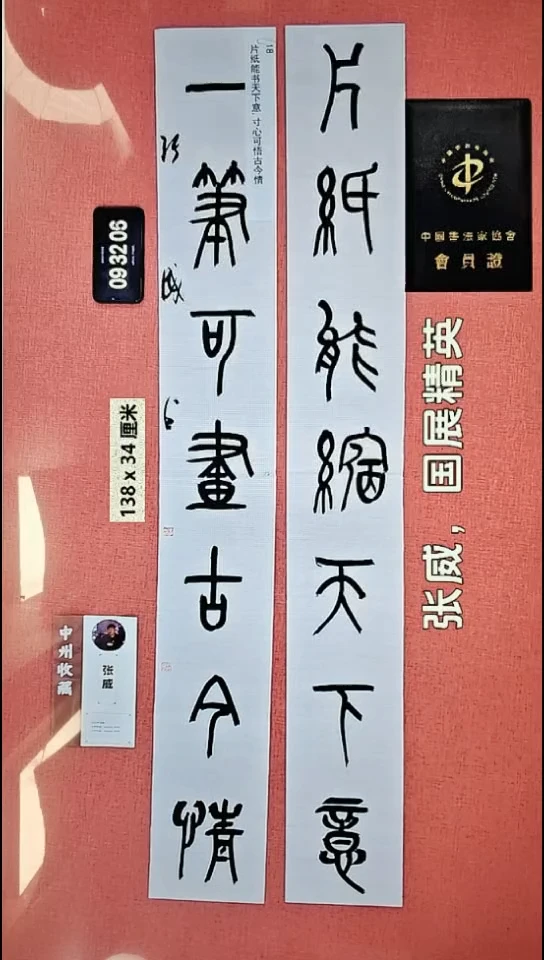 中國書法家協會
會員證
张威，国展精英
片紙能縮天下意
一筆可畫古今情
18
片纸能书天下意 寸心可悟古今情
张威
09 32 06
138 x 34 厘米
张威
中州收藏